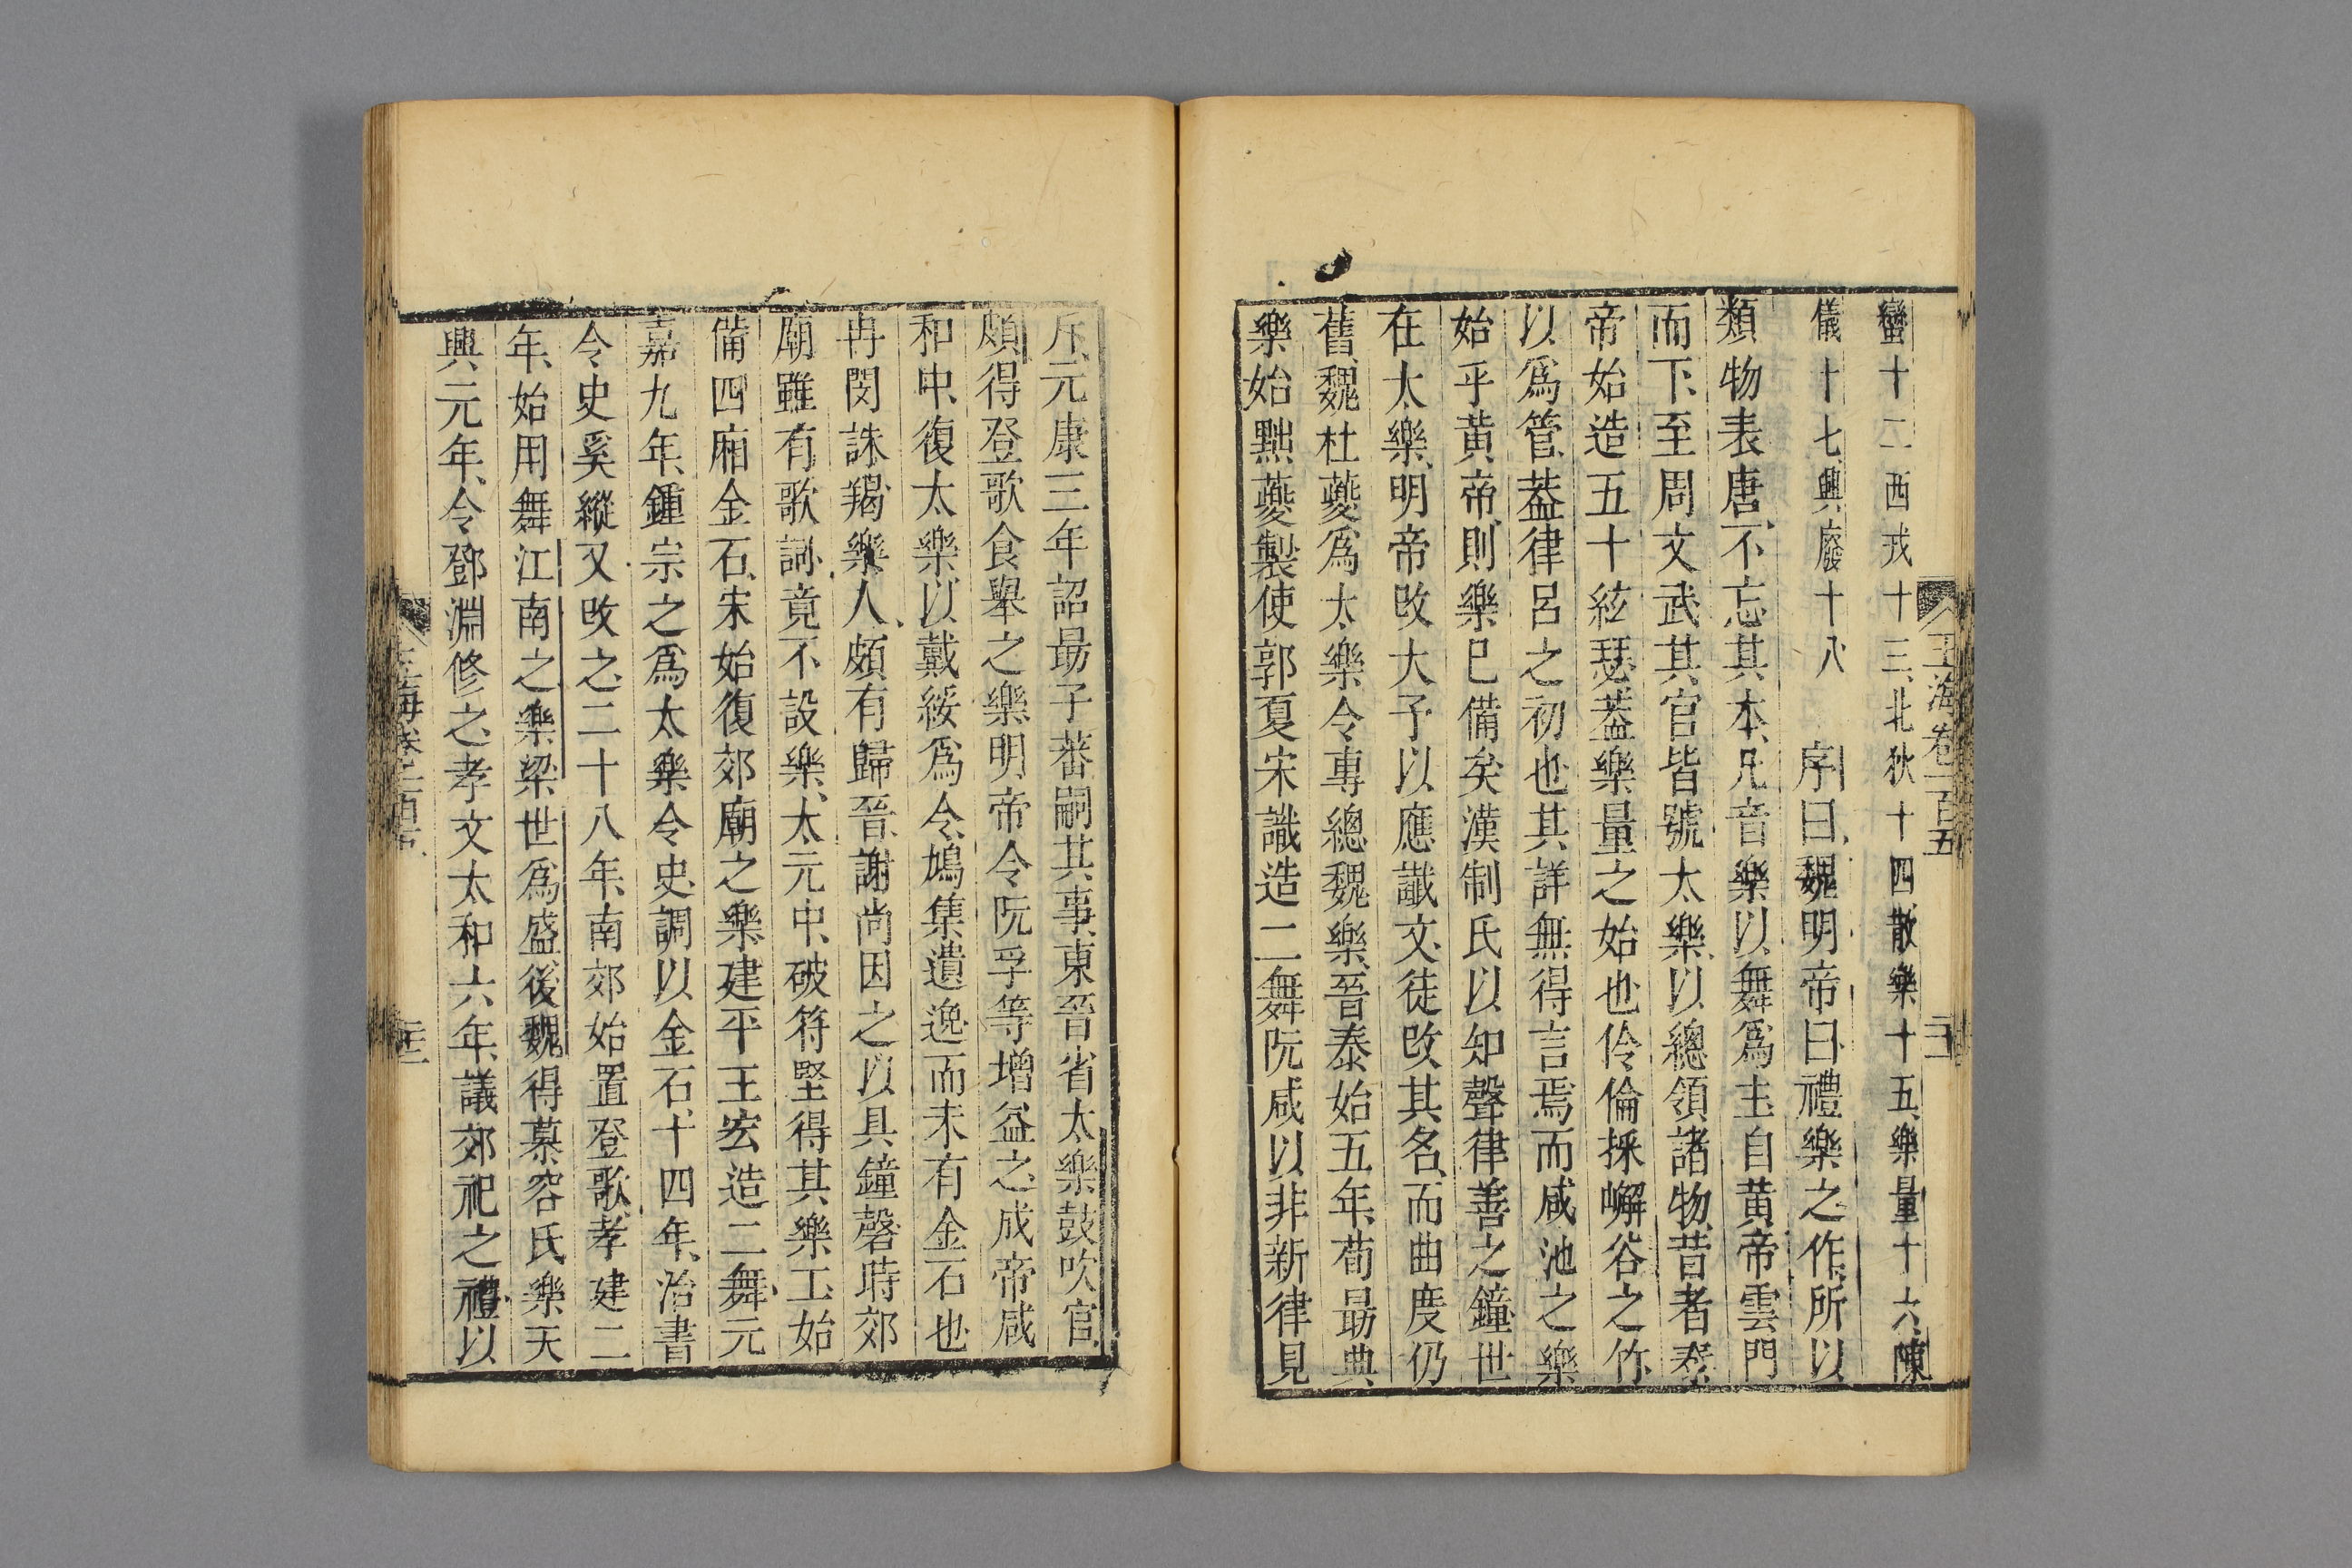 玉海卷一百五
蠻十二西戎十三北狄十四散樂十五樂量十六陳
儀十七興廢十八 序曰魏明帝曰禮樂之作所以
類物表庸不忘其本凡音樂以舞爲主自黃帝雲門
而下至周文武其官皆號太樂以總領諸物昔者泰
帝始造五十絃瑟葢樂量之始也伶倫採嶰谷之竹
以爲管葢律呂之初也其詳無得言焉而咸池之樂
始乎黃帝則樂已備矣漢制氏以知聲律善之鐘世
在太樂明帝改大予以應讖文徒改其名而曲度仍
舊魏杜夔爲太樂令專總魏樂晉泰始五年荀勗典
樂始黜夔製使郭夏宋識造二舞阮咸以非新律見
斥元康三年詔勗子蕃嗣其事東晉省太樂鼓吹官
頗得登歌食舉之樂明帝令阮孚等增益之成帝咸
和中復太樂以戴綏爲令鳩集遺逸而未有金石也
冉閔誅羯樂人頗有歸晉謝尚因之以具鐘磬時郊
廟雖有歌詞竟不設樂太元中破符堅得其樂工始
備四廂金石宋始復郊廟之樂建平王宏造二舞元
嘉九年鍾宗之爲太樂令史調以金石十四年治書
令史奚縱又改之二十八年南郊始置登歌孝建二
年始用舞江南之樂梁世爲盛後魏得慕容氏樂天
興元年令鄧淵修之孝文太和六年議郊祀之禮以
玉海卷一百五